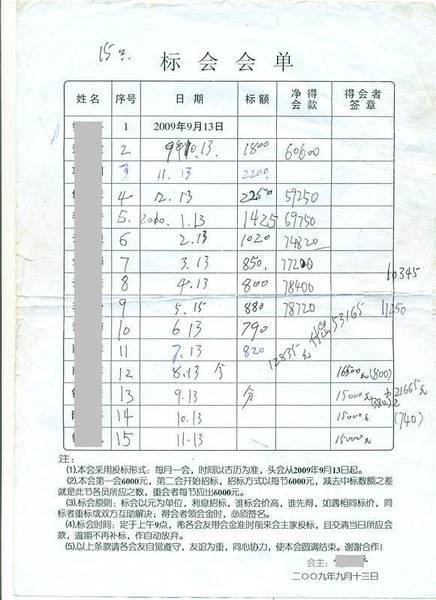 15名.
标会会单
姓名 序号 日期 标额 净得会款 得会者签章
1 2009年9月13日
2 10.13 1800 60600
3 11.13 2200
4 12.13 2250 59250
5. 1.13 1425 69750
6 2.13 1020 74820
7 3.13 850. 77200
8 4.13 800 78400 10345
9 5.15 880 78720 11450
10 6.13 790 53165
11 7.13 820 12835元
12 8.13 16500元(800)
13 9.13 15000元 21665元
14 10.13 15000元 (740)
15 11.13 15000元
注:
(1).本会采用投标形式:每月一会,时间以古历为准,头会从2009年9月13日起。
(2).本会第一会6000元,第二会开始招标,招标方式以每节6000元,减去中标数额之差
就是此节各员所应之数,重会者每节应出6000元。
(3).标会原则:标会以元为单位,利息招标,谁标会价高,谁先得,如遇相同标价,同
标者重标或双方互助解决;得会者领会金时,必须签名。
(4).标会时间:定于上午9点,希各会友带会金准时前来会主家投标,且交清当日所应会
款,逾期不再补标,作自动放弃。
(5).以上条款请各会友自觉遵守,友谊为重,同心协力,使本会圆满结束。谢谢合作!
会主:
二〇〇九年九月十三日